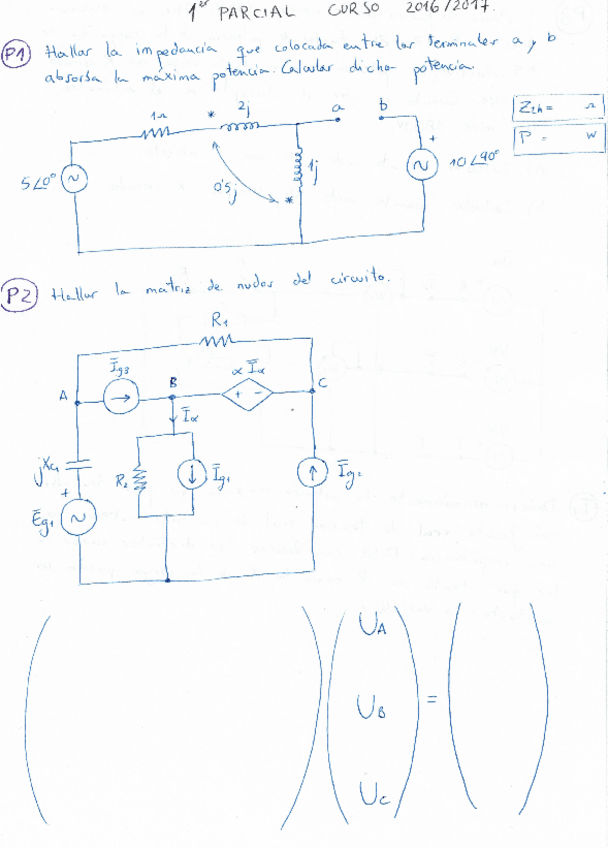 1er PARCIAL CURSO 2016/2017.
P1 Hallar la impedancia que colocada entre los terminales a y b
absorba la máxima potencia. Calcular dicha potencia.
Zth = Ω
P = W
1Ω * 2j a b
+
5∠0° 0'5j 1j 10∠90°
*
P2 Hallar la matriz de nudos del circuito.
R1
Īg3 B αĪα
A + - C
Īα
jXc1 R2 Īg1 Īg2
+
Ēg1
UA
UB =
UC